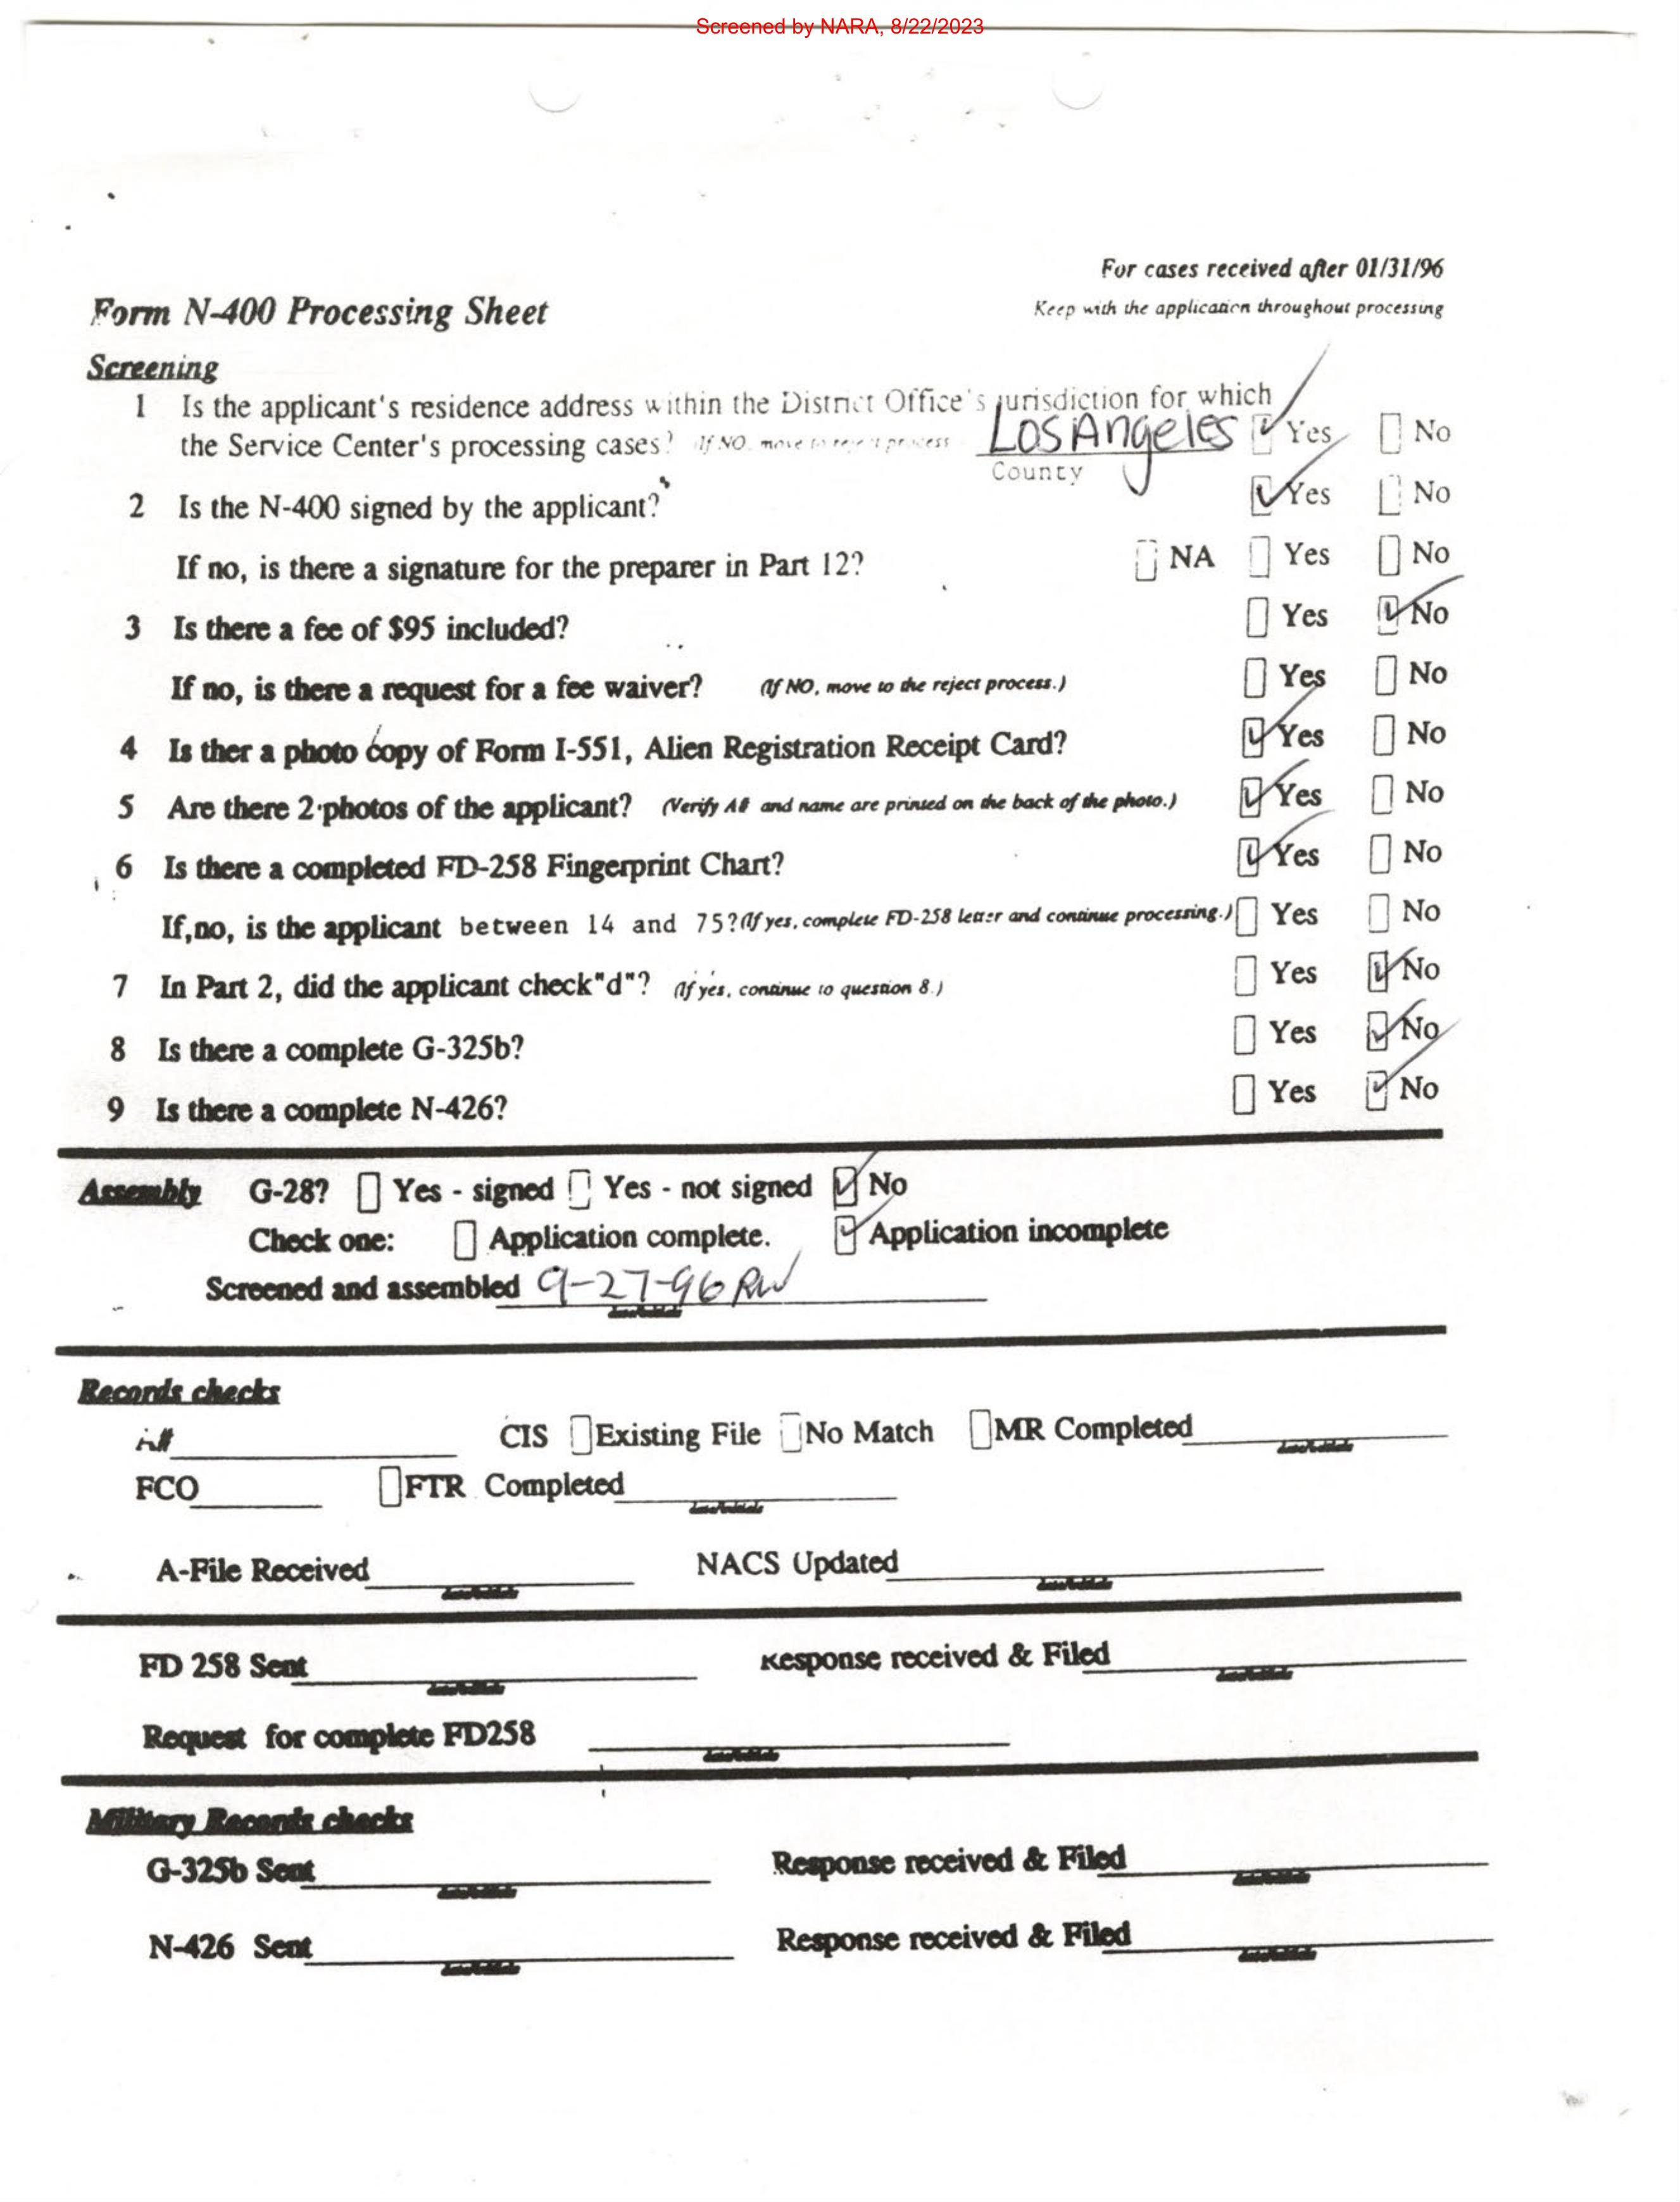 Screened by NARA, 8/22/2023
For cases received after 01/31/96
Form N-400 Processing Sheet
Keep with the application throughout processing
Screening
1 Is the applicant's residence address within the District Office's jurisdiction for which
the Service Center's processing cases? If NO, move to reject process Los Angeles Yes No
County
2 Is the N-400 signed by the applicant? Yes No
If no, is there a signature for the preparer in Part 12? NA Yes No
3 Is there a fee of $95 included? Yes No
If no, is there a request for a fee waiver? (If NO, move to the reject process.) Yes No
4 Is ther a photo copy of Form I-551, Alien Registration Receipt Card? Yes No
5 Are there 2 photos of the applicant? (Verify A# and name are printed on the back of the photo.) Yes No
6 Is there a completed FD-258 Fingerprint Chart? Yes No
If,no, is the applicant between 14 and 75?(If yes, complete FD-258 letter and continue processing.) Yes No
7 In Part 2, did the applicant check"d"? (If yes, continue to question 8.) Yes No
8 Is there a complete G-325b? Yes No
9 Is there a complete N-426? Yes No
Assembly G-28? Yes - signed Yes - not signed No
Check one: Application complete. Application incomplete
Screened and assembled 9-27-96 RW
date/initials
Records checks
A# CIS Existing File No Match MR Completed
date/initials
FCO FTR Completed
date/initials
A-File Received NACS Updated
date/initials date/initials
FD 258 Sent Response received & Filed
date/initials date/initials
Request for complete FD258
date/initials
Military Records checks
G-325b Sent Response received & Filed
date/initials date/initials
N-426 Sent Response received & Filed
date/initials date/initials